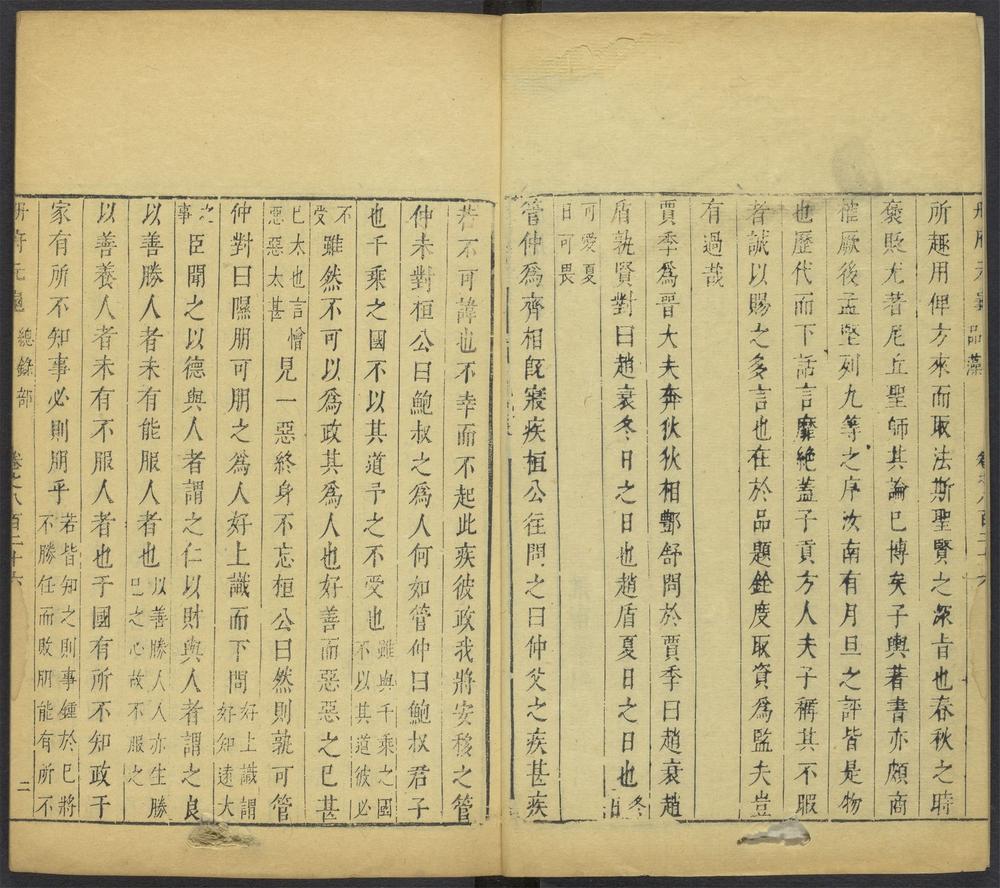 冊府元龜 品藻 卷之八百二十六
所趣用俾方來而取法斯聖賢之深旨也春秋之時
褒貶尤著尼丘聖師其論已博矣子輿著書亦頗商
搉厥後孟堅列九等之序汝南有月旦之評皆是物
也歷代而下話言靡絕蓋子貢方人夫子稱其不暇
者誠以賜之多言也在於品題銓度取資為監夫豈
有過哉
賈季為晉大夫奔狄狄相酆舒問於賈季曰趙衰趙
盾孰賢對曰趙衰冬日之日也趙盾夏日之日也冬日
可愛夏日可畏
管仲為齊相旣寢疾桓公往問之曰仲父之疾甚疾
若不可諱也不幸而不起此疾彼政我將安移之管
仲未對桓公曰鮑叔之為人何如管仲曰鮑叔君子
也千乘之國不以其道予之不受也雖與千乘之國不以其道彼必
不受雖然不可以為政其為人也好善而惡惡之已甚
已太也言憎惡惡太甚見一惡終身不忘桓公曰然則孰可管
仲對曰隰朋可朋之為人好上識而下問好上識謂好知遠大
之事臣聞之以德與人者謂之仁以財與人者謂之良
以善勝人者未有能服人者也以善勝人人亦生勝己之心故不服之
以善養人者未有不服人者也于國有所不知政于
家有所不知事必則朋乎若皆知之則事鍾於己將不勝任而敗朋能有所不
冊府元龜 總錄部 卷之八百二十六 二